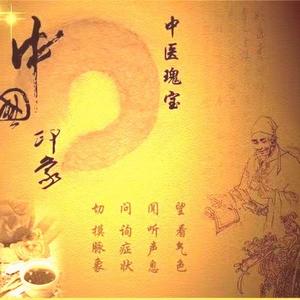 中國印象
中医瑰宝
望看气色
闻听声息
问询症状
切摸脉象